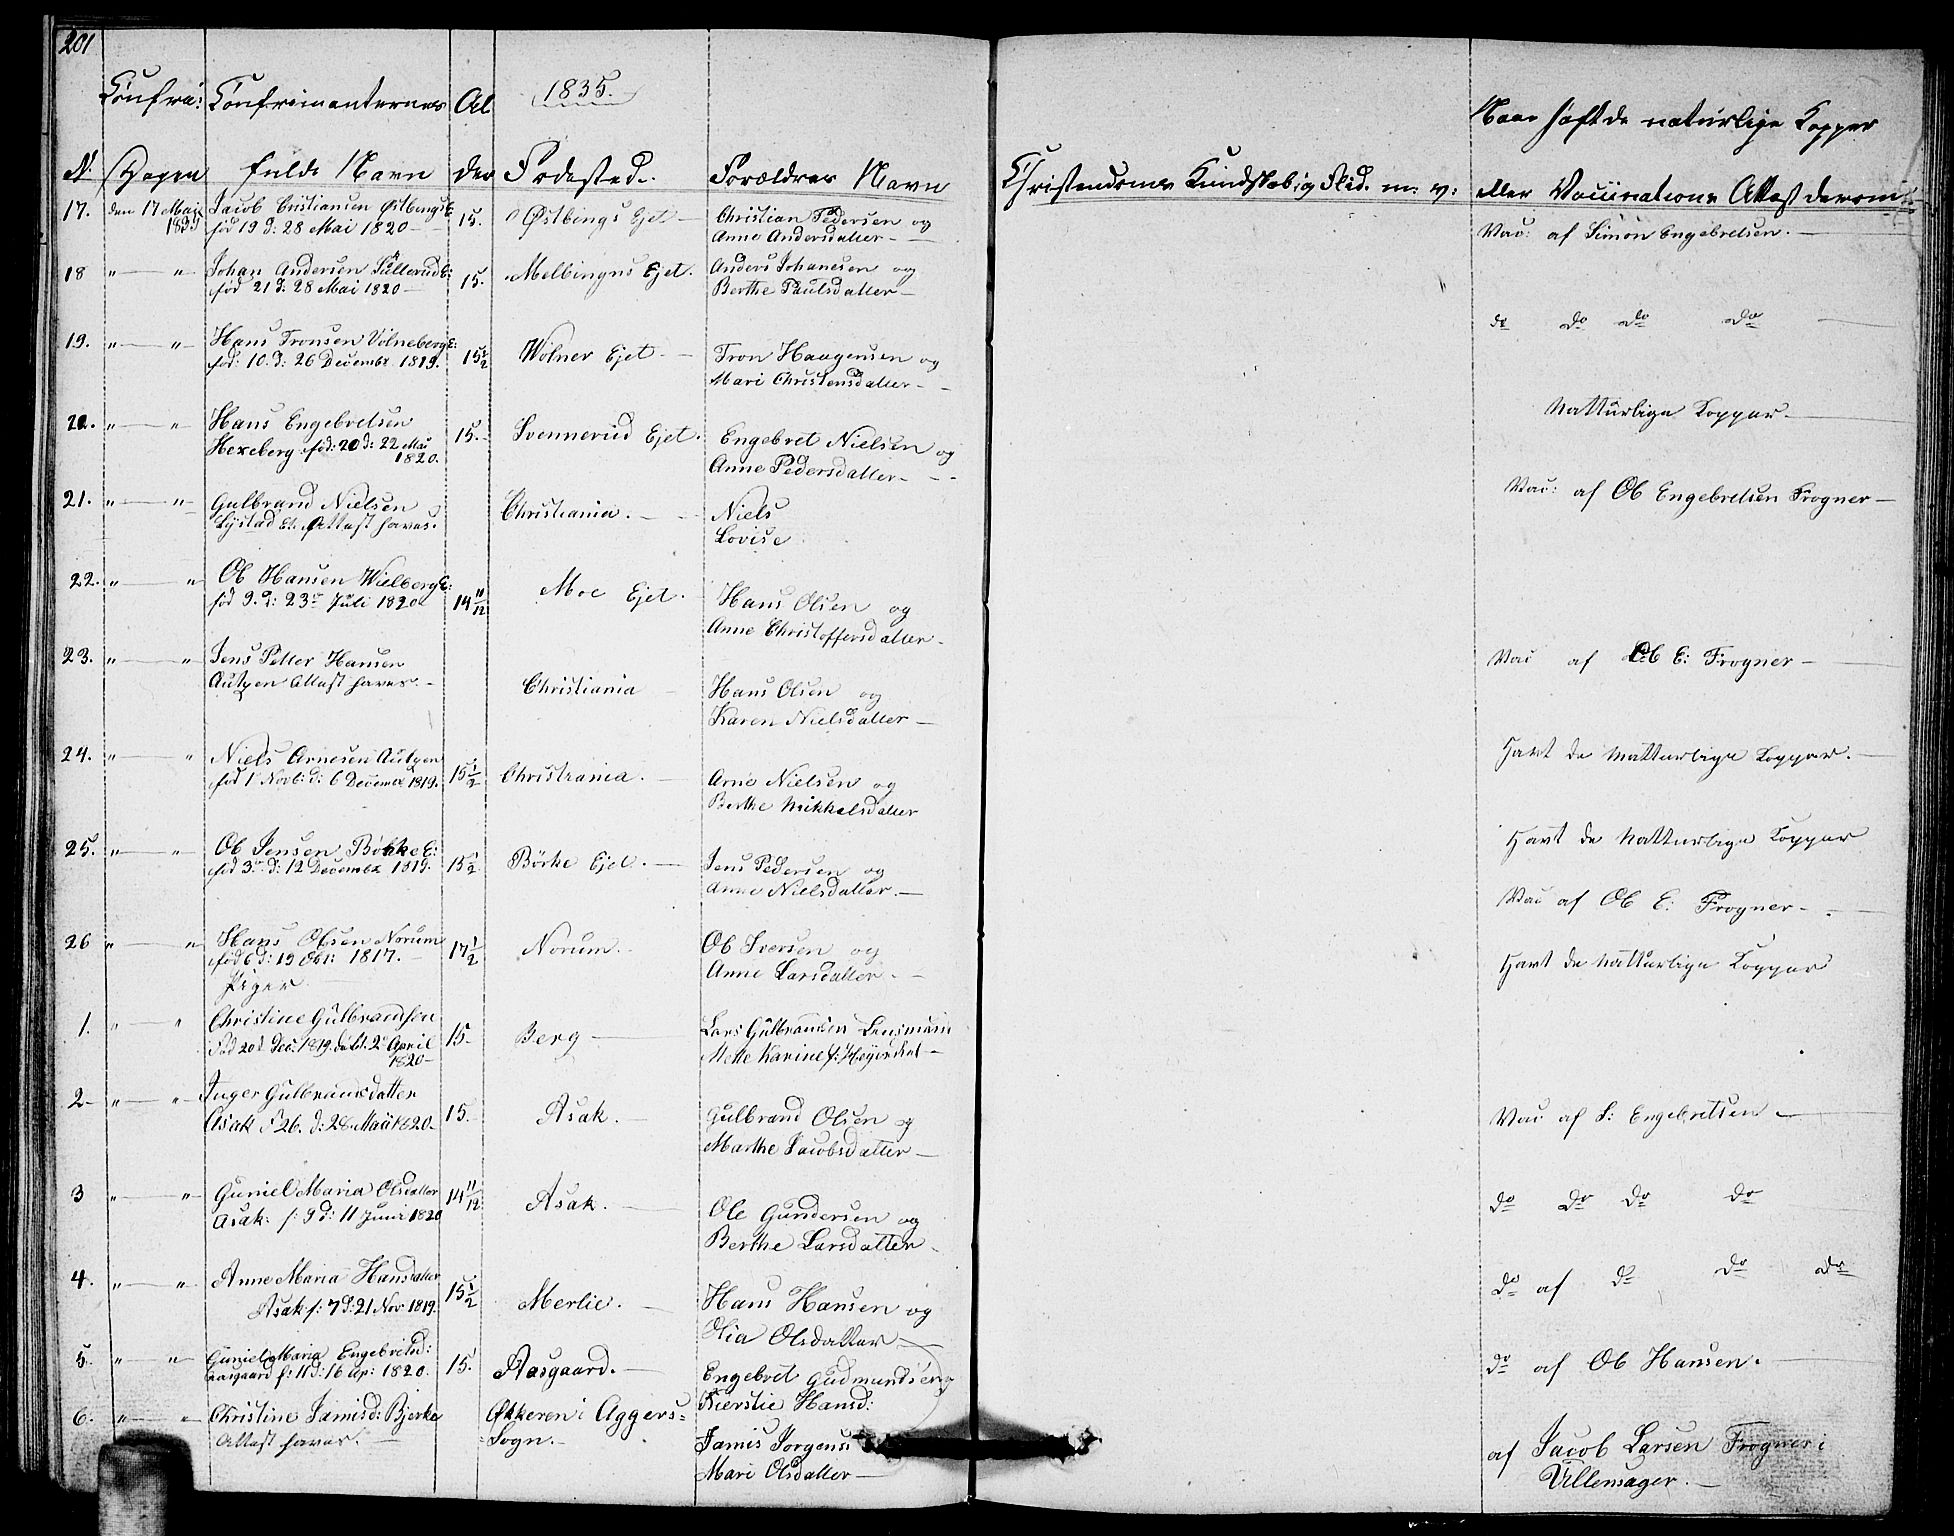 201
1835.
Confir: Confirmanternes Al
Naar haft de naturlige Kopper
N: Dagen fulde Navn der Fødested. Forældres Navn Christendoms Kundskab Flid. m: v: eller Vaccinations Attest derom
17. den 17 Mai 1835 Jacob Cristiansen Østbengs E:
fød 19 d: 28 Mai 1820 15. Østbengs Ejet Christian Pedersen og
Anne Andersdatter Vac: af Simon Engebretsen.
18 " " Johan Andersen Tullerud E:
fød 21 d: 28 Mai 1820 15. Melbingns Ejet. Anders Johanesen og
Berthe Paulsdatter do do do do
19. " " Hans Tronsen Volneberg E:
fød: 10. d: 26 Decembr 1819. 15 1/2 Wolner Ejet Tron Haagensen og
Mari Christensdatter Natturlige Kopper.
20. " " Hans Engebretsen
Hexeberg fød: 20 d: 22 Mai
1820. 15. Svennerud Ejet. Engebret Nielsen og
Anne Pedersdatter Vac: af Ob Engebretsen Frogner
21. " " Gulbrand Nielsen
Lystad E: Attest haves. Christiania. Niels
Lovise
22. " " Ob Hansen Wielberg E:
fød 9. d: 23 Juli 1820 14 11/12 Moe Ejet. Hans Olsen og
Anne Christoffersdatter
23. " " Jens Petter Hansen
Autzen Attest haves. Christiania Hans Olsen og
Karen Nielsdatter Vac af Ob E: Frogner
24. " " Niels Arnesen Autzen
fød 1 Novb: d: 6 December 1819. 15 1/2 Christiania. Arne Nielsen og
Berthe Mikkelsdatter Havt de Natturlige Kopper.
25. " " Ob Jensen Børke E:
fød 3 d: 12 Decembr 1819. 15 1/2 Børke Ejet. Jens Pedersen og
Anne Nielsdatter. Havt de Natturlige Kopper
Vac af Ob E: Frogner
26 " " Hans Olsen Norum
fød 6 d: 19 Obt: 1817. 17 1/2 Norum. Ob Iversen og
Anne Larsdatter. Havt de Natturlige Kopper
Piger
1. " " Christine Gulbrandsen
Fød 20 Dec: 1819. døbt. 2 April
1820 15. Berg Lars Gulbransen Lensmann
Mette Karine f: Heyerdahl
2 " " Inger Gulbransdatter
Asak f 26. d: 28 Mai 1820 15. Asak. Gulbrand Olsen og
Marthe Jacobsdatter Vac af S: Engebretsen
3 " " Guniel Maria Olsdatter
Asak: f: 9 d: 11 Juni 1820 14 11/12 Asak. Ole Gundersen og
Berthe Larsdatter do do do do
4. " " Anne Maria Hansdatter
Asak f: 7 d: 21 Nov 1819. 15 1/2 Merlie. Hans Hansen og
Olia Olsdatter do af do do do
5. " " Guniel Maria Engebretsd:
Aasgaard f: 11 d: 16 Ap: 1820. 15. Aasgaard. Engebret Gudmundsen og
Kierstie Hansd: do af Ob Hansen.
6. " " Christine Jamisd: Bjerke
Attest haves. Økkeren i Aggers=
Sogn. Jamis Jorgens
Mari Olsdatter af Jacob Larsen Frogner i
Ullensager.